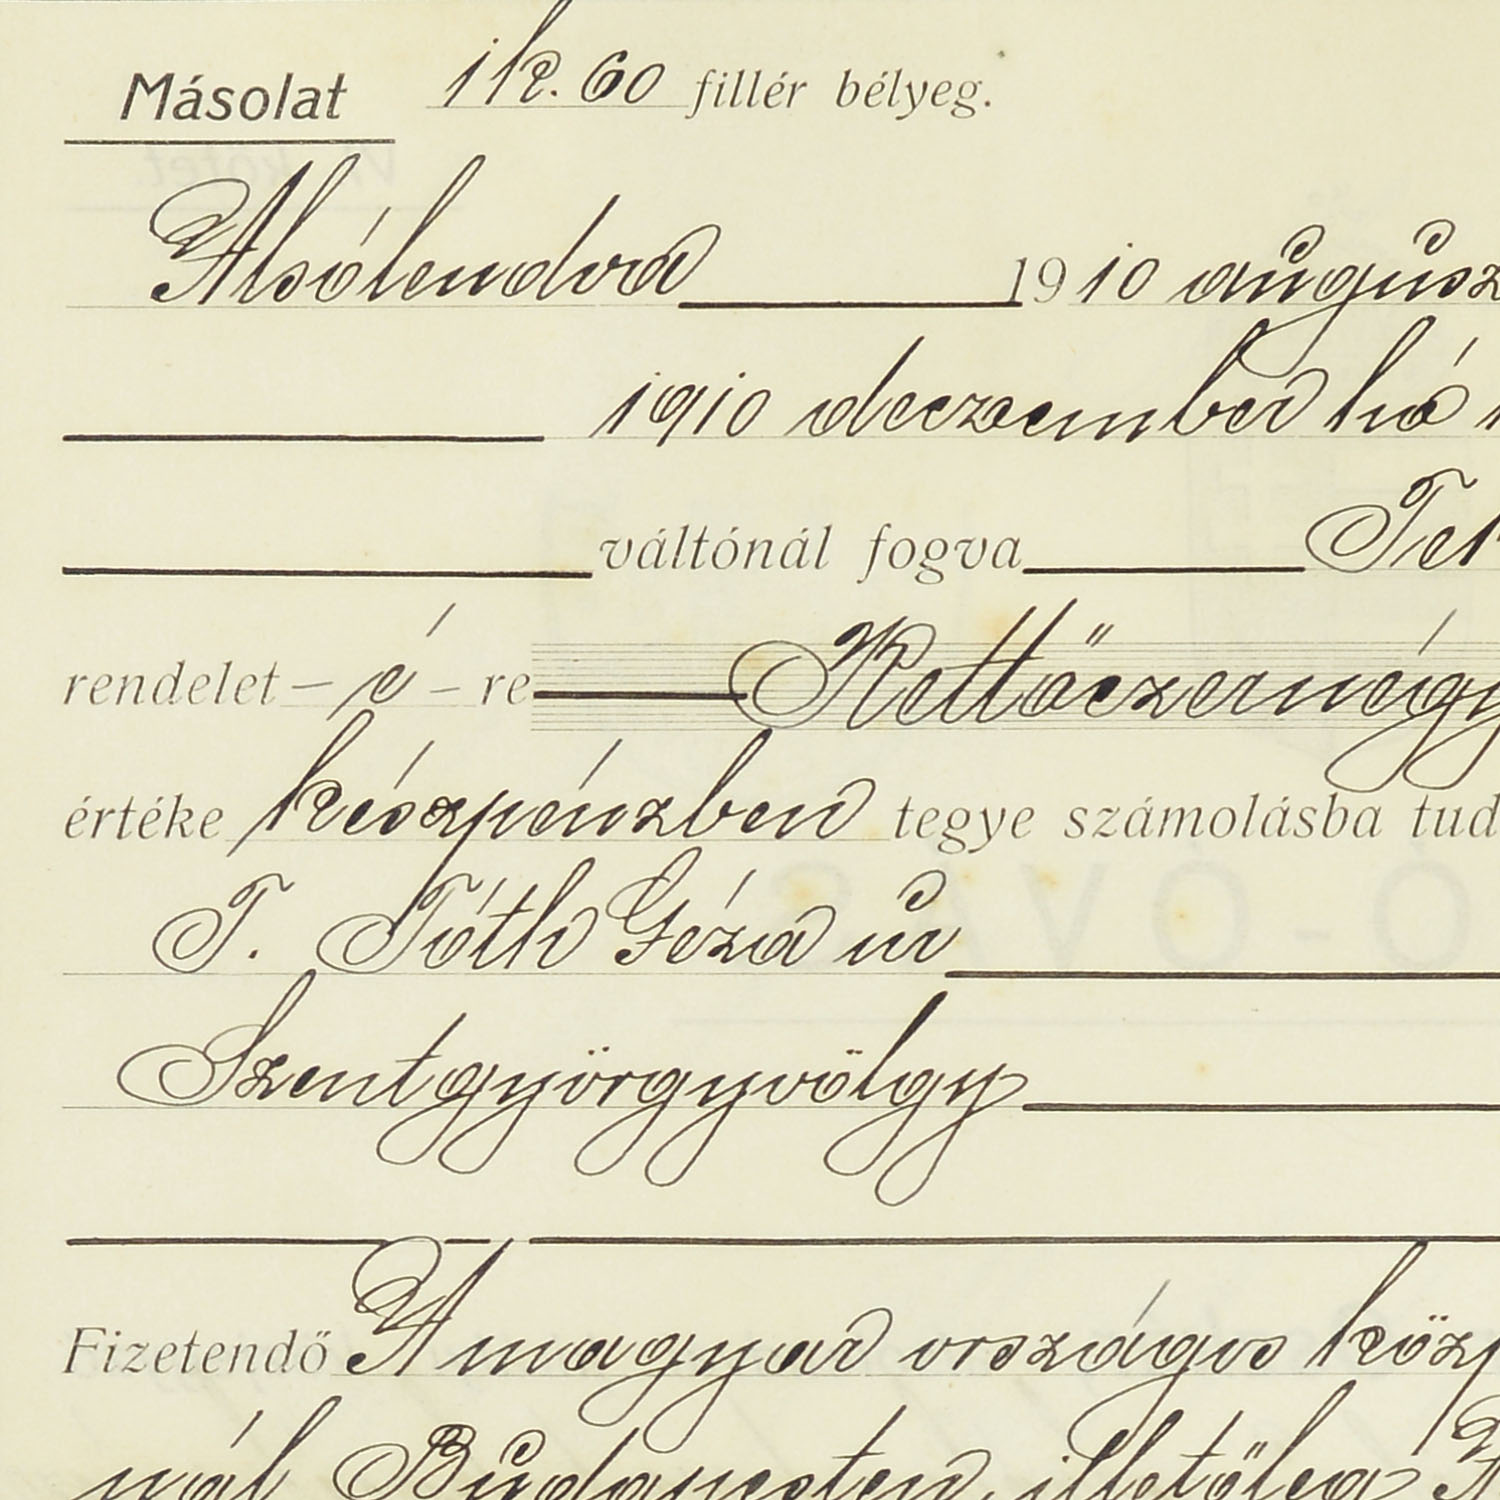 Másolat 1 k. 60 fillér bélyeg.
Alsólendva 1910 augusz
1910 deczember hó 1
váltónál fogva
rendelet – é – re Kettőezernégy
értéke készpénzben tegye számolásba tud
T. Tóth Géza úr
Szentgyörgyvölgy
Fizetendő A magyar országos közp
nál Budapesten, illetőleg